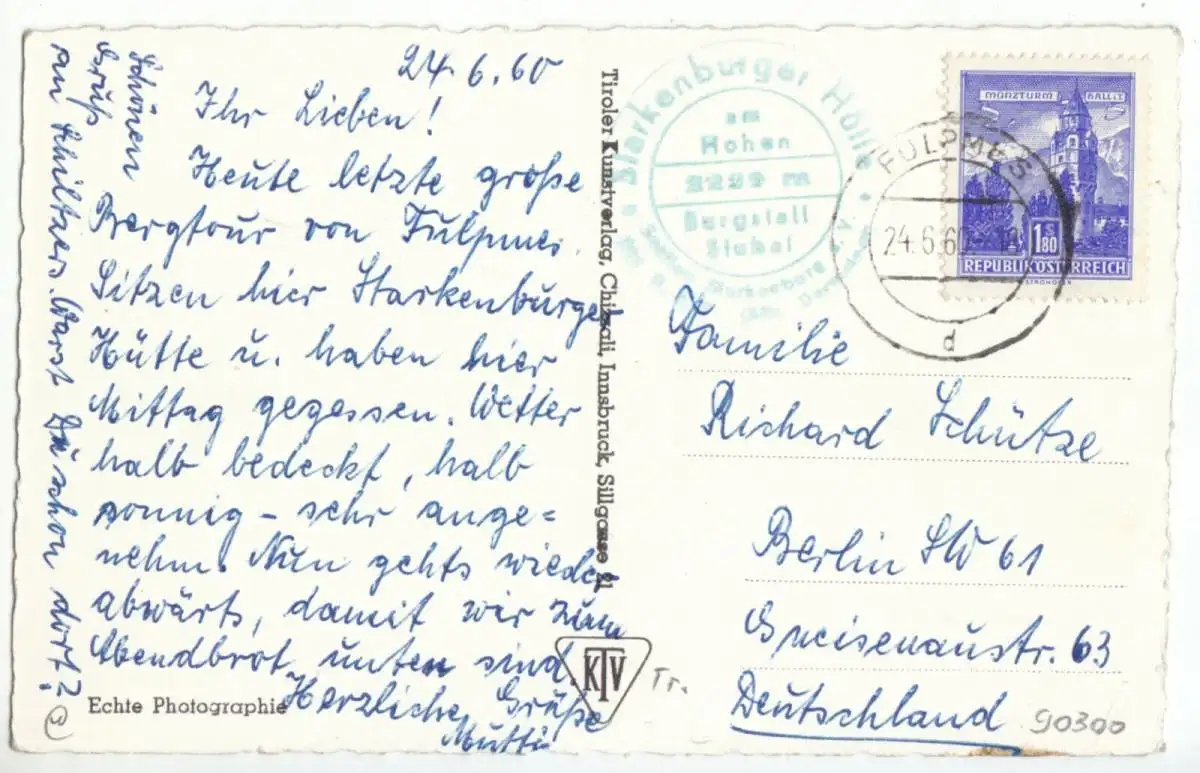 24.6.60
Ihr Lieben!
Heute letzte große
Bergtour von Fulpmes.
Sitzen hier Starkenburger
Hütte u. haben hier
Mittag gegessen. Wetter
halb bedeckt, halb
sonnig – sehr ange=
nehm. Nun gehts wieder
abwärts, damit wir zum
Abendbrot unten sind.
Herzliche Grüße
Mutti
Schönen
Gruß
an Schiltzers. Warst Du schon dort?
Echte Photographie
Tiroler Kunstverlag, Chizzali, Innsbruck, Sillgasse 21
KTV
Tr.
Starkenburger Hütte
am
Hohen
2229 m
Burgstall
Stubai
MÜNZTURM HALL i. T.
1.80
REPUBLIK ÖSTERREICH
FULPMES
24.6.60
d
Familie
Richard Schütze
Berlin SW 61
Gneisenaustr. 63
Deutschland
90300